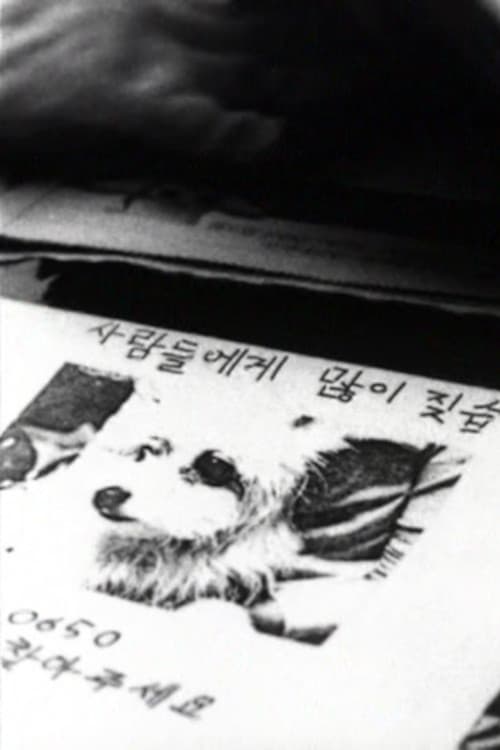 사람들에게 많이 짖습
0650
찾아주세요